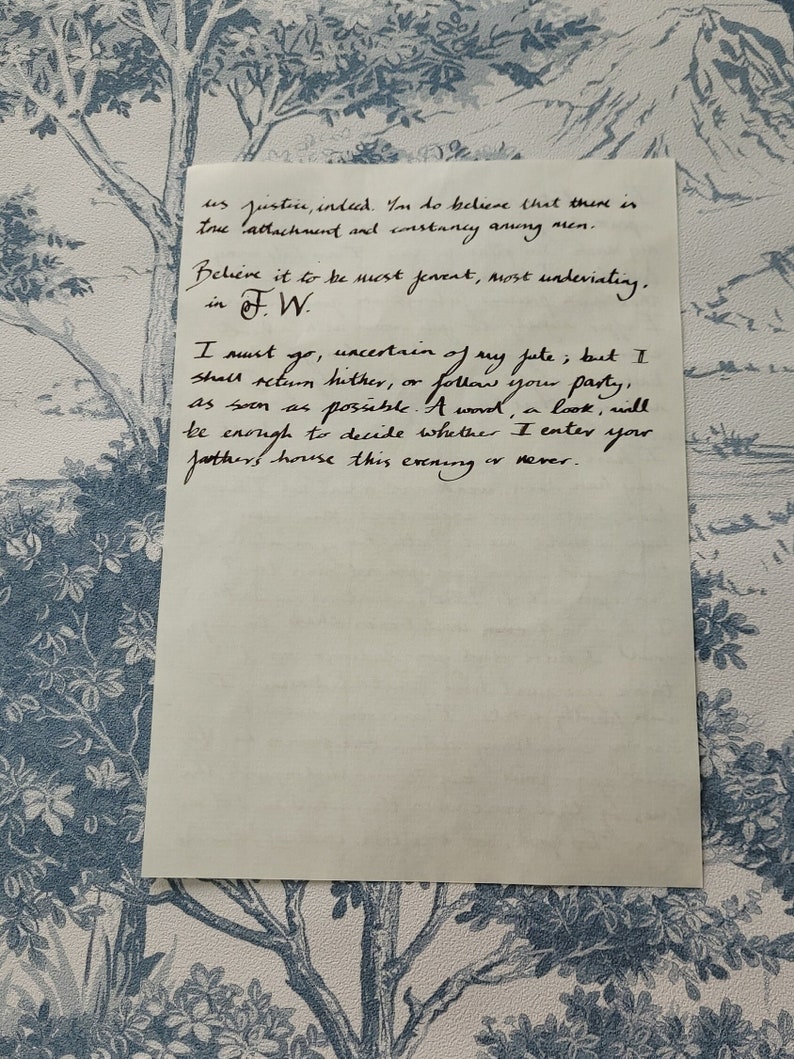 us justice, indeed. You do believe that there is
true attachment and constancy among men.
Believe it to be most fervent, most undeviating,
in F. W.
I must go, uncertain of my fate; but I
shall return hither, or follow your party,
as soon as possible. A word, a look, will
be enough to decide whether I enter your
father's house this evening or never.